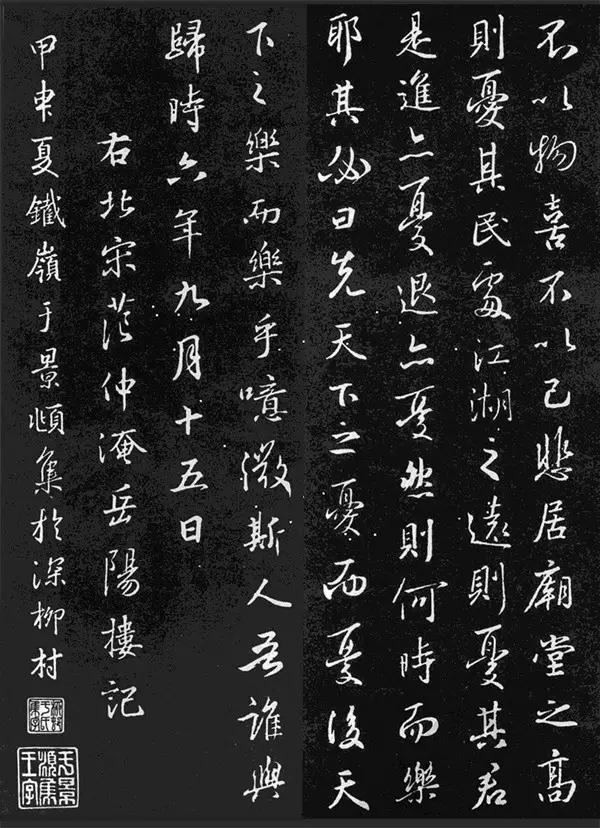 不以物喜不以己悲居廟堂之高
則憂其民處江湖之遠則憂其君
是進亦憂退亦憂然則何時而樂
耶其必曰先天下之憂而憂後天
下之樂而樂乎噫微斯人吾誰與
歸時六年九月十五日
右北宋范仲淹岳陽樓記
甲申夏鐵嶺于景頫集於深柳村
于景頫集王字